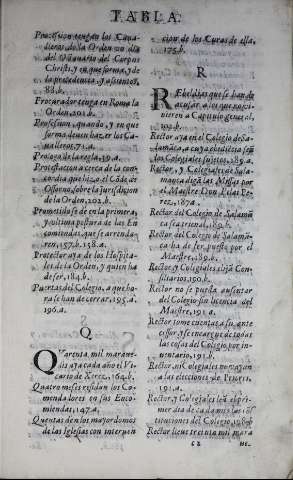 TABLA.
Procession tengan los Caua
lleros de la Orden vn dia
del Otauario del Corpus
Christi, y en que forma, y de
la precedencia, y assientos,
88.b.
Procurador tenga en Roma la
Orden, 201.b.
Profession, quando, y en que
forma deuen hazer los Ca-
ualleros, 71.a.
Prologo de la regla, 39.a.
Protestacion a cerca de la con
cordia que hizo el Côde de
Ossorno, sobre la jurisdicion
de la Orden, 202.b.
Prometimiẽ
y vltima postura de las En
comiendas, que se arrenda-
ren, 157.b. 158.a.
Protector aya de los Hospita-
les de la Orden, y quien ha
de ser, 184.b.
Puertas del Colegio, a que ho-
ra se han de cerrar, 195.a.
196.a.
Q
QVarenta mil maraue-
dis aya cada año el Vi-
cario de Xerez, 164.b.
Quatro meses residan los Co-
mendadores en sus Enco-
miendas, 147.a.
Quentas de los mayordomos
de las Iglesias con interuen
cion de los Curas de ella,
175.b.
R
REbeldes que se han de
acusar, a los que no vi-
nieren a Capitulo general,
103.b.
Rector aya en el Colegio de Sa-
lamãca, a cuya obediẽcia estẽ
los Colegiales sujetos, 189.a.
Rector, y Colegiales de Sala-
manca digã las Missas por
el Maestre Don Pelay Pe-
rez, 187.a.
Rector del Colegio de Salamã
ca sea trienal, 189.b.
Rector del Colegio de Salamã
ca ha de ser puesto por el
Maestre, 189.b.
Rector, y Colegiales elijã Con-
siliarios, 190.b.
Rector no se pueda ausentar
del Colegio sin licencia del
Maestre, 191.a.
Rector tome cuentas a su ante
cessor, y se encargue de todas
las cosas del Colegio por in-
uentario, 191.b.
Rector, ni Colegiales no vayan
a las elecciones de Priores,
191.a.
Rector, y Colegiales leã el pri-
mer dia de cada mes las cõs
tituciones del Colegio,
Rector
c2